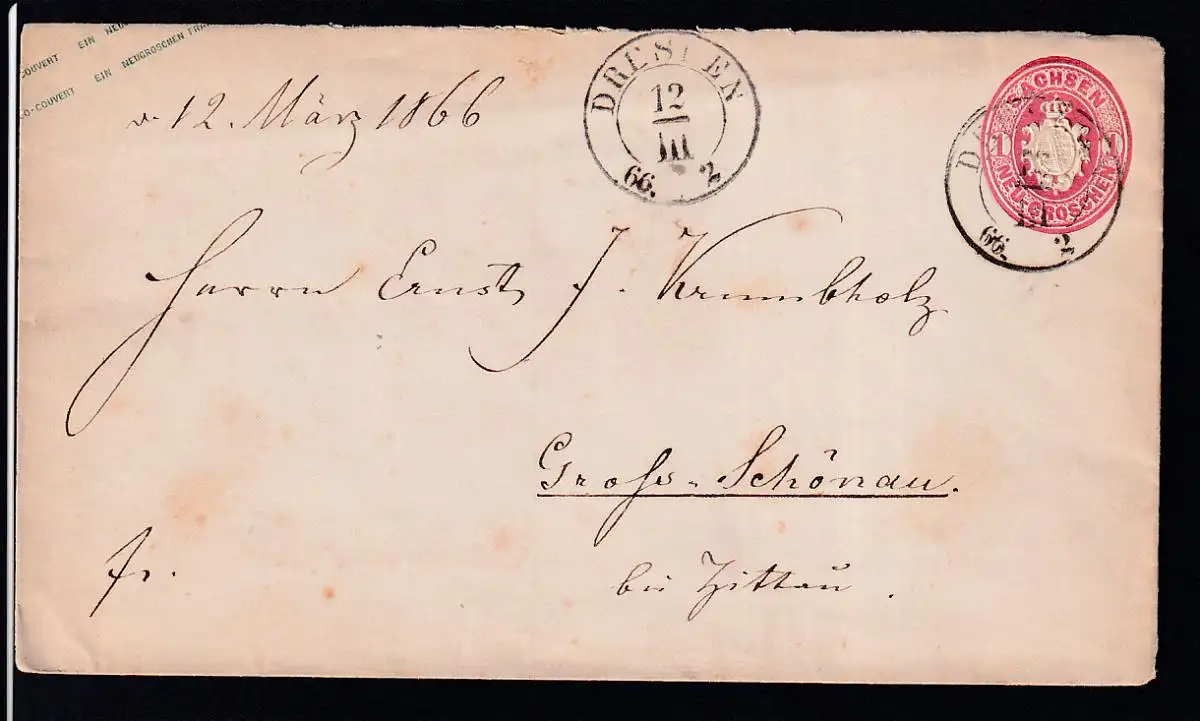 COUVERT EIN NEU
O-COUVERT EIN NEUGROSCHEN FRAN
v. 12. März 1866
DRESDEN
12
III
66. 2
SACHSEN
1 1
NEUGROSCHEN
III
66. 2
Herrn Ernst J. Krumbholz
Groß-Schönau.
fr.
bei Zittau.